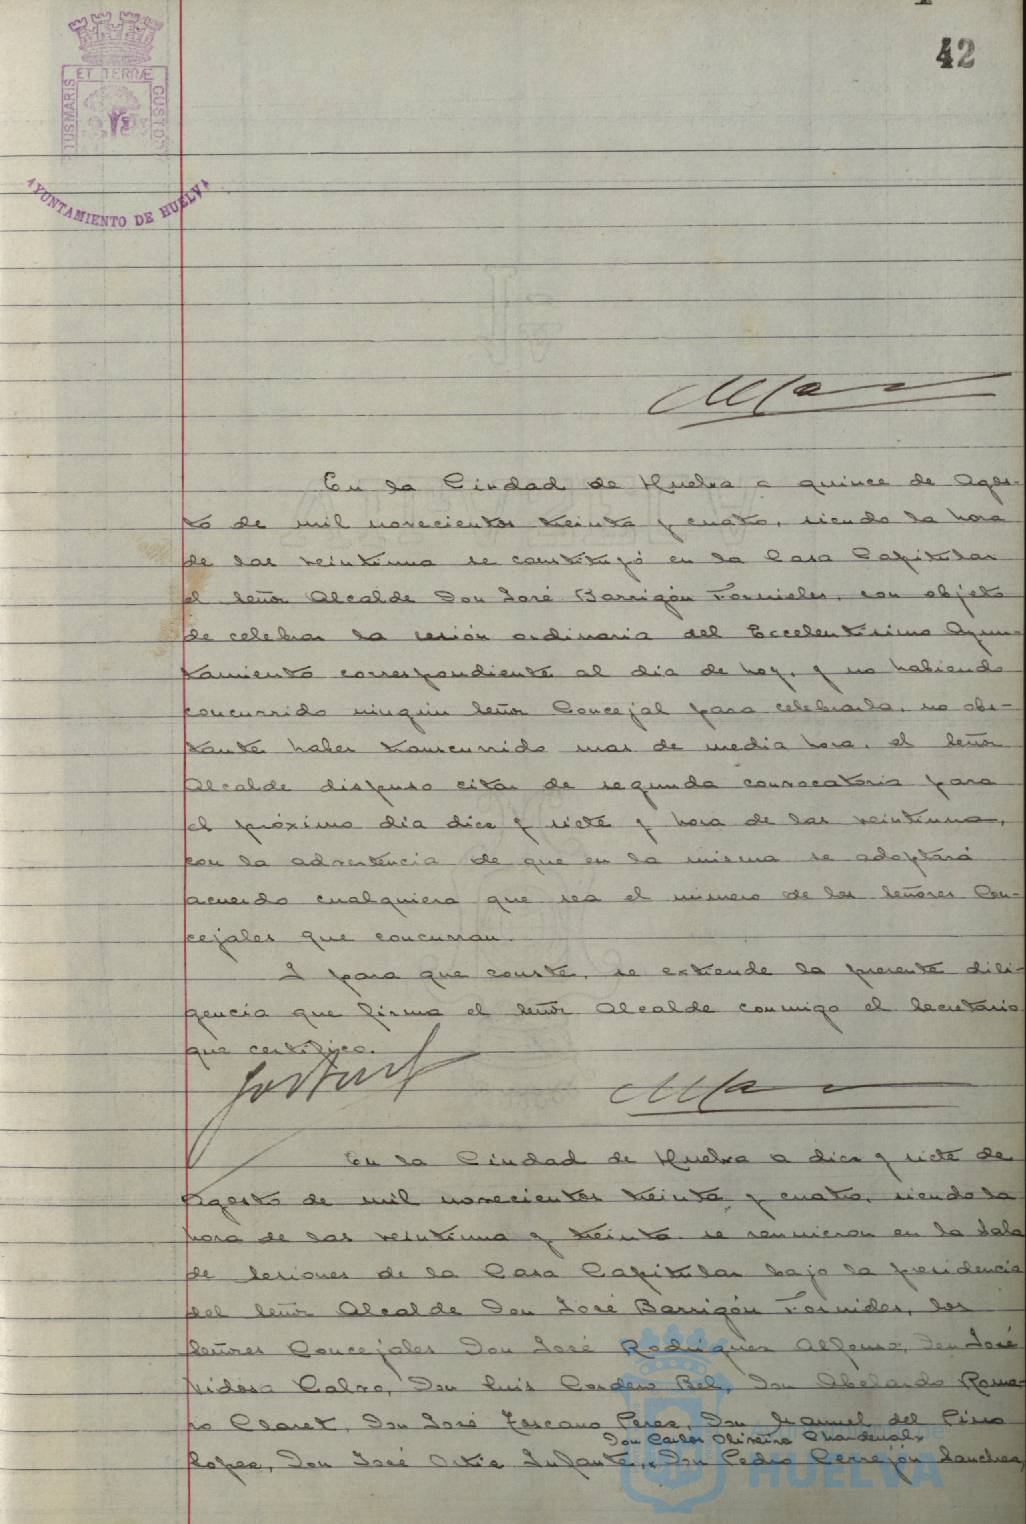 42
ET TERRÆ
TUS MARIS
CUSTO
AYUNTAMIENTO DE HUELVA
En la Ciudad de Huelva a quince de Agos-
to de mil novecientos treinta y cuatro, siendo la hora
de las veintiuna se constituyó en la Casa Capitular
el Señor Alcalde Don José Barrigón Fornieles, con objeto
de celebrar la sesión ordinaria del Excelentísimo Ayun-
tamiento correspondiente al día de hoy, y no habiendo
concurrido ningún Señor Concejal para celebrarla, no obs-
tante haber transcurrido mas de media hora, el Señor
Alcalde dispuso citar de segunda convocatoria para
el próximo día diez y siete y hora de las veintiuna,
con la advertencia de que en la misma se adoptará
acuerdo cualquiera que sea el número de los Señores Con-
cejales que concurran.
Y para que conste, se extiende la presente dili-
gencia que firma el Señor Alcalde conmigo el Secretario
que certifico.
En la Ciudad de Huelva a diez y siete de
Agosto de mil novecientos treinta y cuatro, siendo la
hora de las veintiuna y treinta se reunieron en la Sala
de Sesiones de la Casa Capitular bajo la presidencia
del Señor Alcalde Don José Barrigón Fornieles, los
Señores Concejales Don José Rodríguez Alfonso, Don José
Vidosa Calvo, Don Luis Cordero Bel, Don Abelardo Rome-
ro Claret, Don José Toscano Perez, Don Manuel del Pino
Don Carlos Oliveira Chardenal,
Lopez, Don José Ortiz Infante, Don Pedro Cerrejón Sanchez,
HUELVA